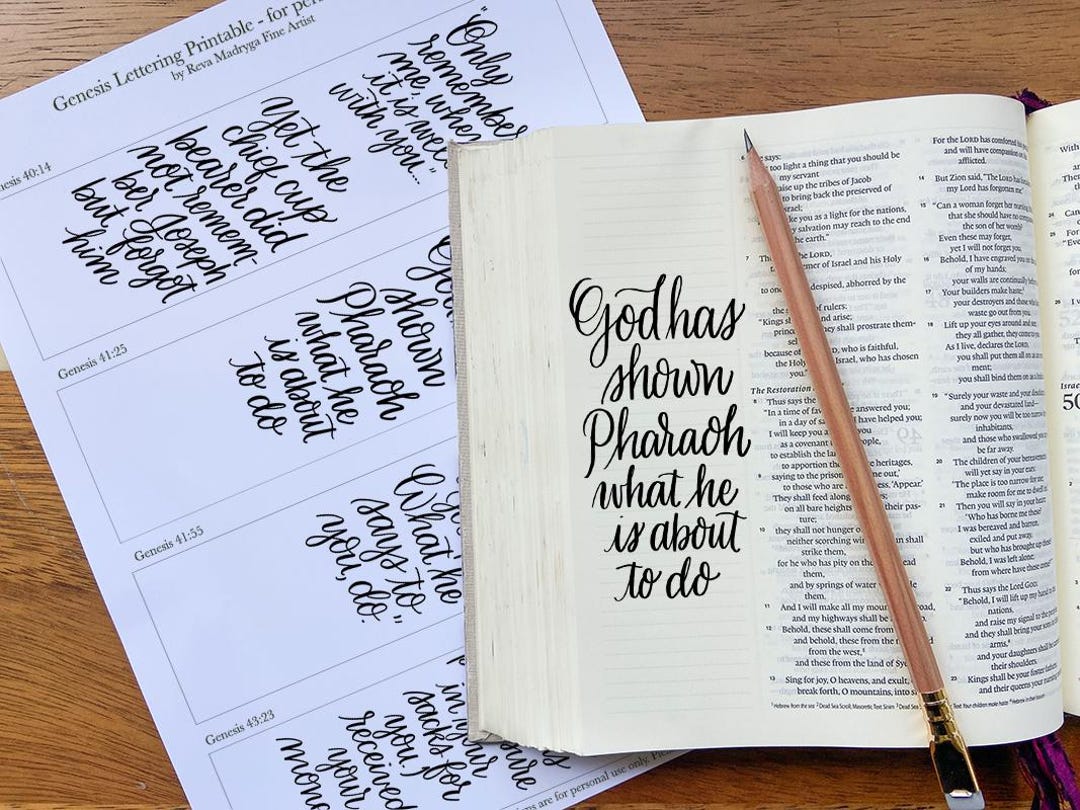 Genesis Lettering Printable - for per
by Reva Madryga Fine Artist
"Only
remember
me, when
it is well
with you...
nesis 40:14
Yet the
chief cup
bearer did
not remem-
ber Joseph
but forgot
him
Genesis 41:25
God
shown
Pharaoh
what he
is about
to do
Genesis 41:55
What he
says to
you, do."
Genesis 43:23
in your
sacks for
you, I
received
your
mone
sure
ons are for personal use only. Pleas
God has
shown
Pharaoh
what he
is about
to do
6 says:
too light a thing that you should be
my servant
aise up the tribes of Jacob
to bring back the preserved of
srael;
ke you as a light for the nations,
y salvation may reach to the end
he earth."
7 Th the LORD,
emer of Israel and his Holy
to one despised, abhorred by the
the of rulers:
"Kings s and arise;
princ they shall prostrate them-
sel
because of D, who is faithful,
the Holy Israel, who has chosen
you."
The Restoration
8 Thus says the
"In a time of fav answered you;
in a day of sa I have helped you;
I will keep you a you
as a covenant ople,
to establish the la
to apportion the e heritages,
9 saying to the prison e out,'
to those who are ess, 'Appear.'
They shall feed along s;
on all bare heights their pas-
ture;
10 they shall not hunger o
neither scorching win un shall
strike them,
for he who has pity on the ead
them,
and by springs of water de
them.
11 And I will make all my mou road,
and my highways shall be
12 Behold, these shall come from
and behold, these from the n
from the west,
and these from the land of Sy
13 Sing for joy, O heavens, and exult,
break forth, O mountains, into s
For the LORD has comforted
and will have compassion
afflicted.
14 But Zion said, "The LORD has
my Lord has forgotten me."
15 "Can a woman forget her nursing
that she should have no compa
the son of her womb?
Even these may forget,
yet I will not forget you.
16 Behold, I have engraved you on
of my hands;
your walls are continually before
17 Your builders make haste;
your destroyers and those who
waste go out from you.
18 Lift up your eyes around and see;
they all gather, they come to
As I live, declares the LORD,
you shall put them all on as an
ment;
you shall bind them on as a bri
19 "Surely your waste and your desolate
and your devastated land—
surely now you will be too narrow
inhabitants,
and those who swallowed you
be far away.
20 The children of your bereavement
will yet say in your ears:
'The place is too narrow for me;
make room for me to dwell in
21 Then you will say in your heart:
'Who has borne me these?
I was bereaved and barren,
exiled and put away,
but who has brought up these?
Behold, I was left alone;
from where have these come?'"
22 Thus says the Lord GOD:
"Behold, I will lift up my hand to
nations,
and raise my signal to the peoples
and they shall bring your sons in
arms,
and your daughters shall be
their shoulders.
23 Kings shall be your foster fathers,
and their queens your nursing
1 Hebrew from the sea 2 Dead Sea Scroll; Masoretic Text Sinim 3 Dead Sea Text Your children make haste
With
24
Can
25
For
26
Israe
50